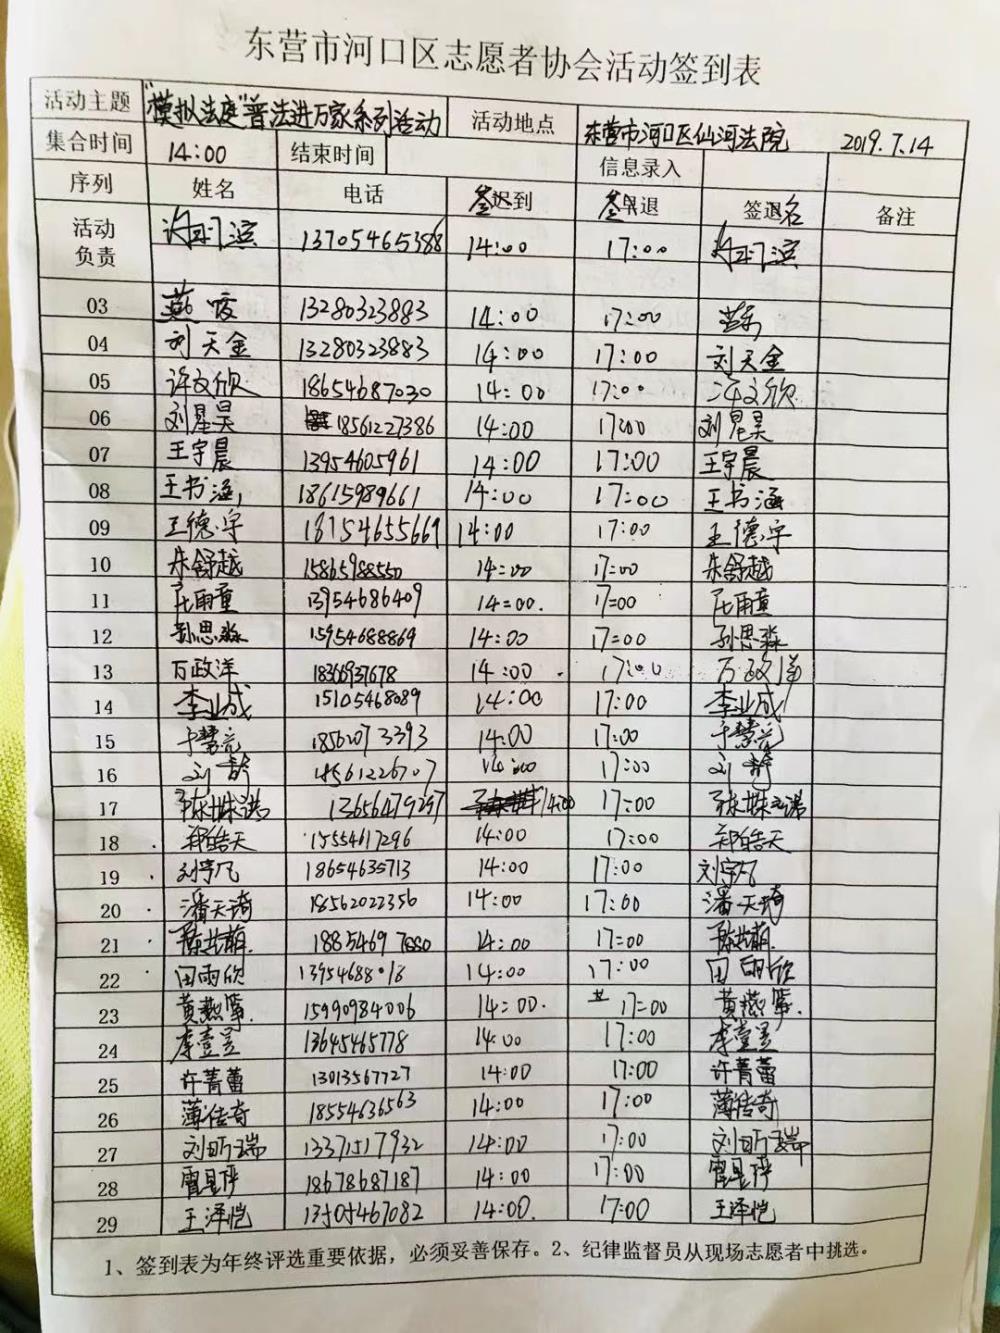 东营市河口区志愿者协会活动签到表
活动主题 "模拟法庭"普法进万家系列活动 活动地点 东营市河口区仙河法院 2019.7.14
集合时间 14:00 结束时间 信息录入
序列 姓名 电话 签到 签退 签退名 备注
活动负责 13705465388 14:00 17:00
03 燕 13280323883 14:00 17:00
04 刘天金 13280323883 14:00 17:00 刘天金
05 许文欣 18654687030 14:00 17:00 许文欣
06 刘星昊 18561227386 14:00 17:00 刘星昊
07 王宇晨 13954605961 14:00 17:00 王宇晨
08 王书涵 18615989661 14:00 17:00 王书涵
09 王德宇 18754655669 14:00 17:00 王德宇
10 朱舒越 15865988550 14:00 17:00 朱舒越
11 雨童 13954686409 14:00. 17:00 雨童
12 孙思淼 15954688869 14:00 17:00 孙思淼
13 万政洋 14:00 17:00 万政洋
14 李业成 15105468089 14:00 17:00 李业成
15 于慧 14:00 17:00 于慧
16 刘 18561226707 14:00 17:00 刘
17 13656479297 14:00 17:00
18 郑皓天 15554617296 14:00 17:00 郑皓天
19 刘宇凡 18654635713 14:00 17:00 刘宇凡
20 潘天琦 18562022356 14:00 17:00 潘天琦
21 陈 萌 14:00 17:00 陈 萌
22 田雨欣 14:00 17:00 田雨欣
23 黄燕 15990984006 14:00. 17:00 黄燕
24 李壹 13645465778 14:00 17:00 李壹
25 许菁蕾 13013567727 14:00 17:00 许菁蕾
26 薄传奇 18554636563 14:00 17:00 薄传奇
27 刘昕瑞 13371517932 14:00 17:00 刘昕瑞
28 18678687187 14:00 17:00
29 王泽恺 14:00. 17:00 王泽恺
1、签到表为年终评选重要依据，必须妥善保存。2、纪律监督员从现场志愿者中挑选。